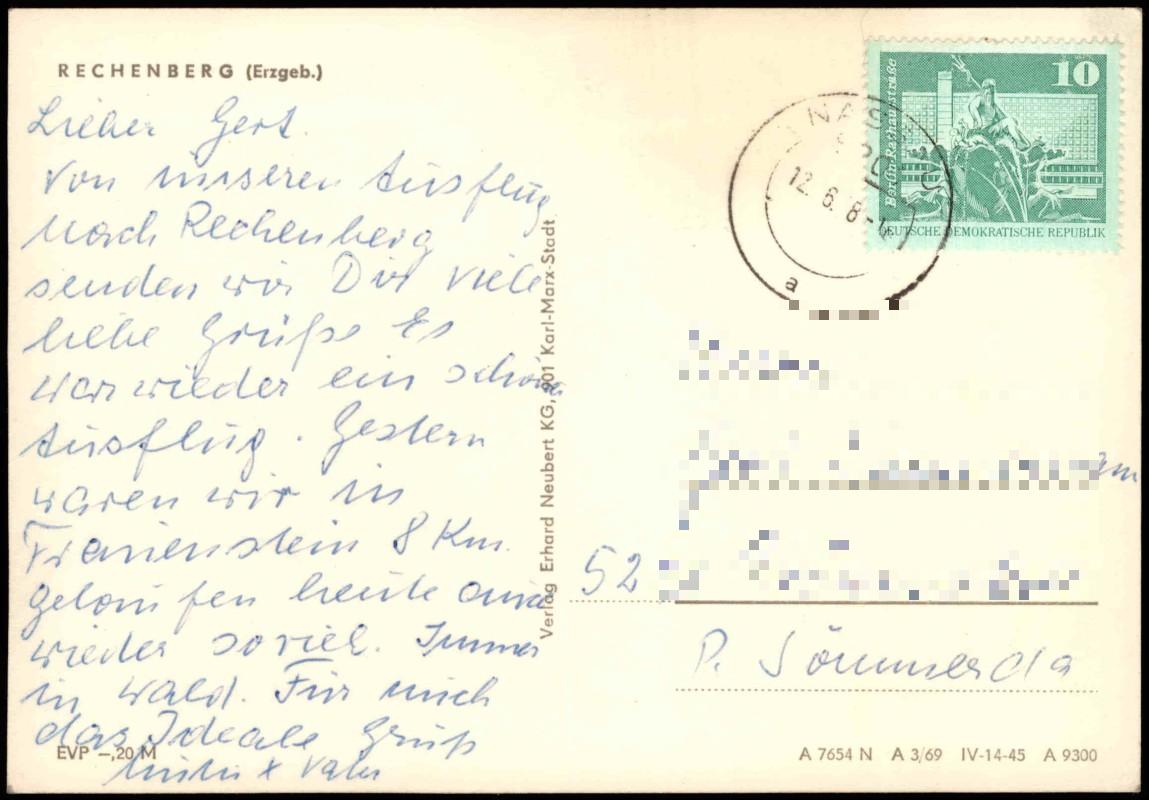 RECHENBERG (Erzgeb.)
Lieber Gert.
Von unseren Ausflug
nach Rechenberg
senden wir Dir viele
liebe Grüße Es
war wieder ein schöner
Ausflug. Gestern
waren wir in
Frauenstein 8 Km.
gelaufen heute
wieder soviel. Immer
in Wald. Für mich
das Ideale Gruß
Mutti + Vater
EVP –,20 M
Verlag Erhard Neubert KG, 901 Karl-Marx-Stadt
10
Berlin Rathausstraße
DEUTSCHE DEMOKRATISCHE REPUBLIK
12. 6. 8
a
52
P. Sömmerda
A 7654 N A 3/69 IV-14-45 A 9300